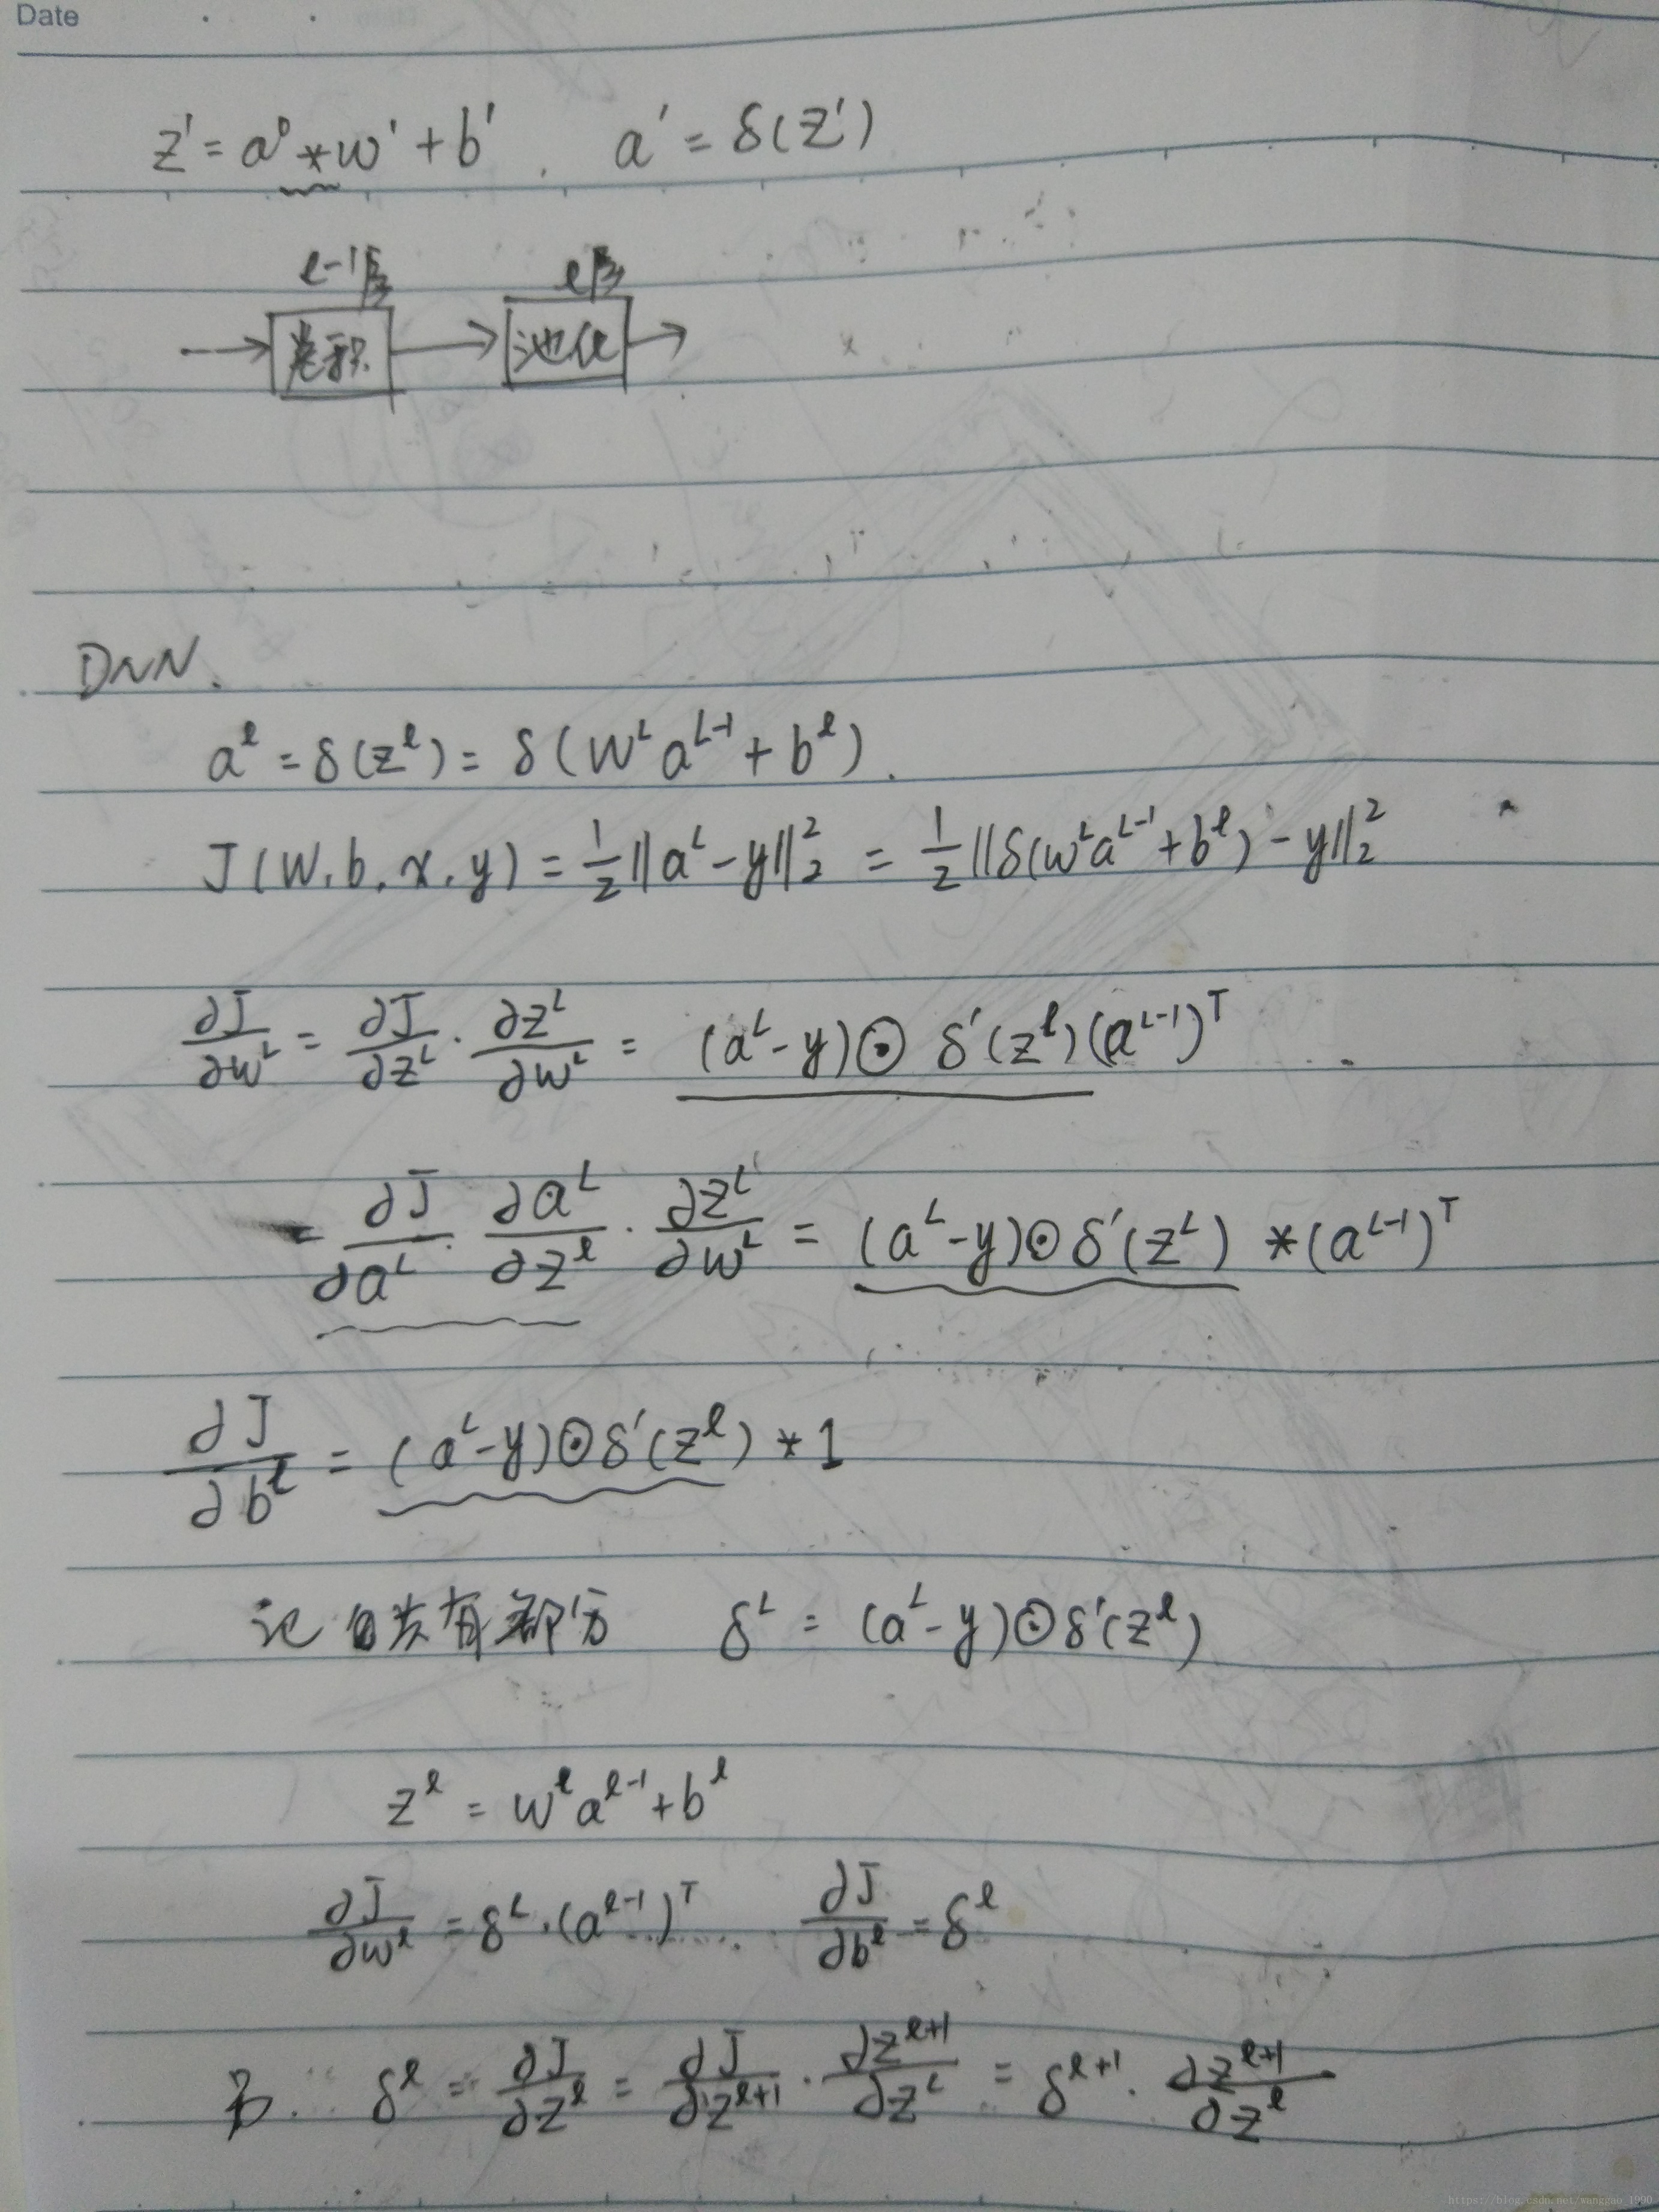 Date
z' = a⁰ * w' + b' , a' = δ(z')
l-1层 l层
卷积 池化
DNN.
aˡ = δ(zˡ) = δ(Wᴸ aᴸ⁻¹ + bˡ).
J(W.b.x.y) = 1/2 ||aᴸ - y||₂² = 1/2 ||δ(wᴸaᴸ⁻¹ + bˡ) - y||₂²
∂J/∂wᴸ = ∂J/∂zᴸ · ∂zᴸ/∂wᴸ = (aᴸ - y) ⊙ δ'(zˡ)(aᴸ⁻¹)ᵀ
= ∂J/∂aᴸ · ∂aᴸ/∂zˡ · ∂zᴸ/∂wᴸ = (aᴸ - y) ⊙ δ'(zᴸ) * (aᴸ⁻¹)ᵀ
∂J/∂bˡ = (aᴸ - y) ⊙ δ'(zˡ) * 1
记 共有部分 δᴸ = (aᴸ - y) ⊙ δ'(zˡ)
zˡ = wˡaˡ⁻¹ + bˡ
∂J/∂wˡ = δᴸ · (aˡ⁻¹)ᵀ ∂J/∂bˡ = δˡ
δˡ = ∂J/∂zˡ = ∂J/∂zˡ⁺¹ · ∂zˡ⁺¹/∂zᴸ = δˡ⁺¹ · ∂zˡ⁺¹/∂zˡ